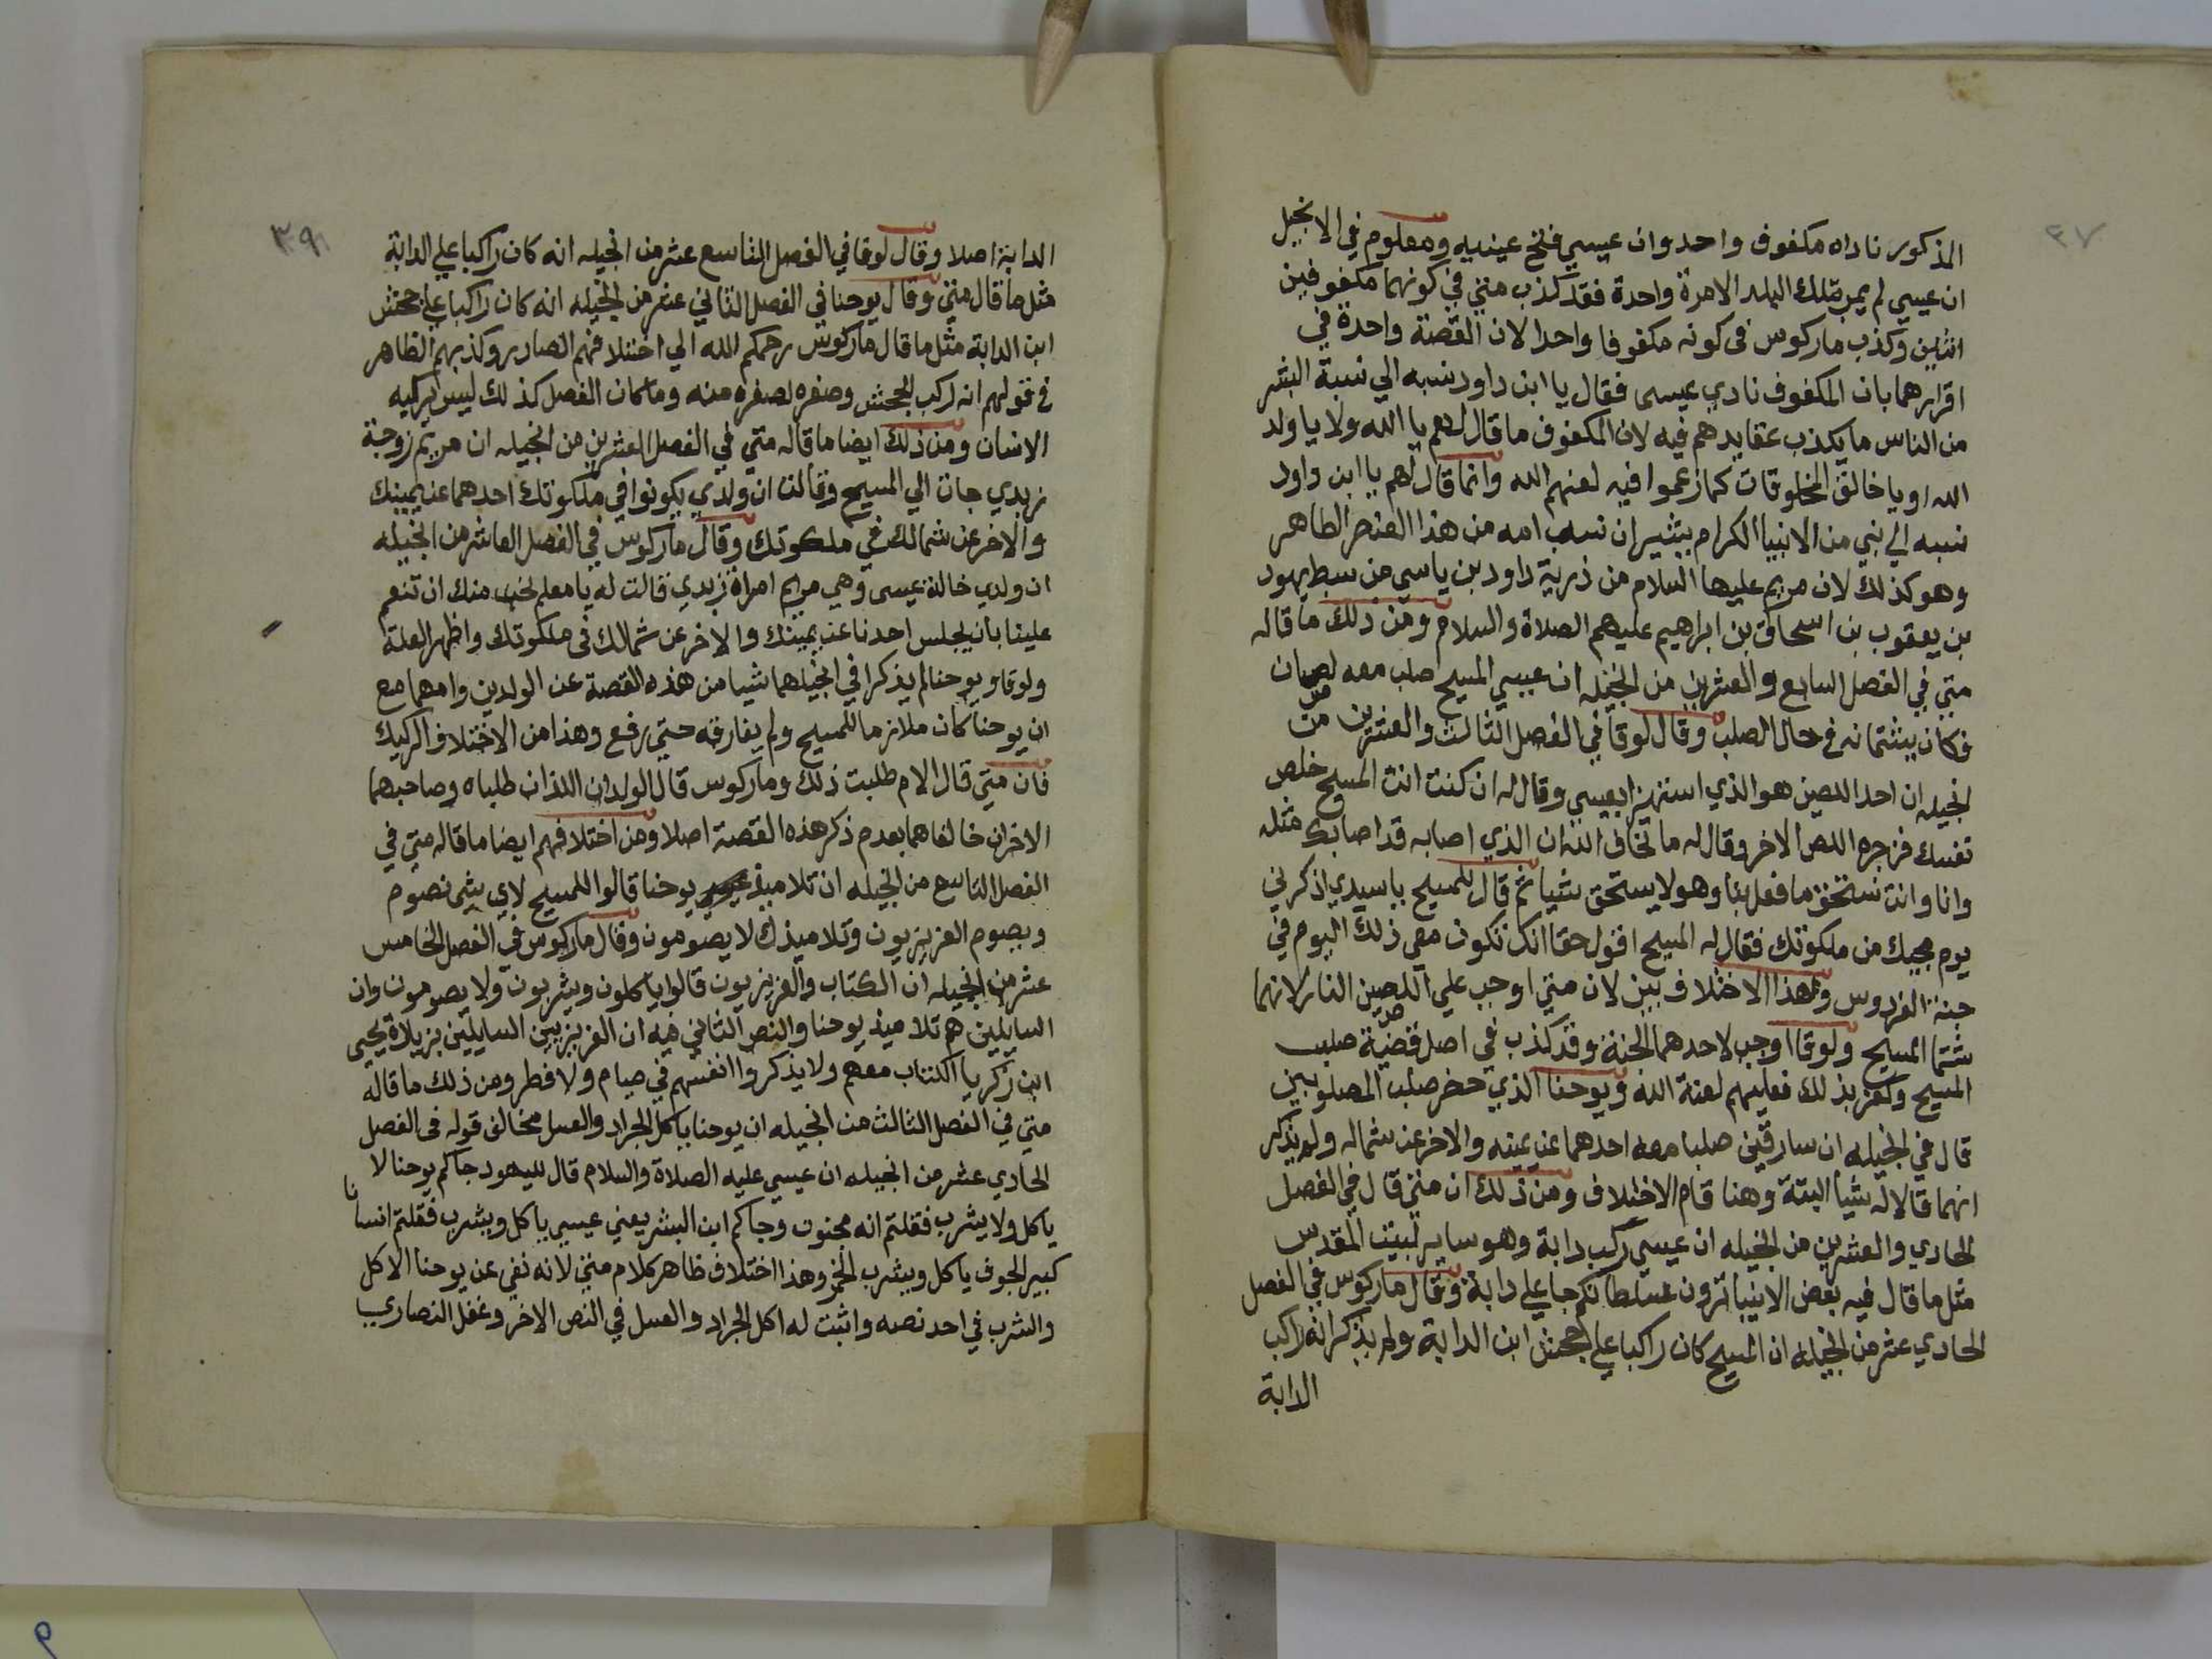 ٣٧
المذكور ناداه مكفوف واحد وان عيسي فتح عينيه ومعلوم في الانجيل
ان عيسي لم يمر بتلك البلد الامرة واحدة فقد كذب متي في كونهما مكفوفين
اثنين وكذب ماركوس في كونه مكفوفا واحدا لان القصة واحدة في
اقرارهما بان المكفوف نادي عيسى فقال يا ابن داود نسبه الي نسبة البشر
من الناس ما يكذب عقايدهم فيه لان المكفوف ما قال لهم يا الله ولا يا ولد
الله او يا خالق المخلوقات كما زعموا فيه لعنهم الله وانما قال لهم يا ابن داود
نسبه الي نبي من الانبيا الكرام يشير ان نسب امه من هذا العنصر الطاهر
وهو كذلك لان مريم عليها السلام من ذرية داود بن ياسي من سبط يهود
بن يعقوب بن اسحاق بن ابراهيم عليهم الصلاة والسلام ومن ذلك ما قاله
متي في الفصل السابع والعشرين من انجيله ان عيسي المسيح صلب معه لصان
فكان يشتمانه في حال الصلب وقال لوقا في الفصل الثالث والعشرين من
انجيله ان احد اللصين هو الذي استهزا بعيسي وقال له ان كنت انت المسيح خلص
نفسك فزجره اللص الاخر وقال له ما تخاف الله ان الذي اصابه قد اصابك مثله
وانا وانت نستحق ما فعل بنا وهو لا يستحق شيا ثم قال للمسيح يا سيدي اذكرني
يوم مجيك من ملكوتك فقال له المسيح اقول حقا انك تكون معي ذلك اليوم في
جنة الفردوس وهذا الاختلاف بين لان متي اوجب علي اللصين النار لانهما
شتما المسيح ولوقا اوجب لاحدهما الجنة وقد كذب في اصل قضية صلب
المسيح وكفر بذلك فعليهم لعنة الله ويوحنا الذي حضر صلب المصلوبين
قال في انجيله ان سارقين صلبا معه احدهما عن يمينه والاخر عن شماله ولم يذكر
انهما قالا له شيا البتة وهنا قام الاختلاف ومن ذلك ان متي قال في الفصل
الحادي والعشرين من انجيله ان عيسي ركب دابة وهو ساير لبيت المقدس
مثل ما قال فيه بعض الانبيا ترون سلطانكم جا علي دابة وقال ماركوس في الفصل
الحادي عشر من انجيله ان المسيح كان راكبا علي جحش ابن الدابة ولم يذكر انه راكب
الدابة
٣٩
الدابة اصلا وقال لوقا في الفصل التاسع عشر من انجيله انه كان راكبا علي الدابة
مثل ما قال متي وقال يوحنا في الفصل الثاني عشر من انجيله انه كان راكبا علي جحش
ابن الدابة مثل ما قال ماركوس رحمكم الله الي اختلافهم الصادر وكذبهم الظاهر
في قولهم انه ركب للجحش وصغره لصغره منه وما كان الفصل كذلك ليس يركبه
الانسان ومن ذلك ايضا ما قاله متي في الفصل العشرين من انجيله ان مريم زوجة
زبدي جات الي المسيح وقالت ان ولدي يكونوا في ملكوتك احدهما عن يمينك
والاخر عن شمالك في ملكوتك وقال ماركوس في الفصل العاشر من انجيله
ان ولدي خالة عيسى وهي مريم امراة زبدي قالت له يا معلم نحب منك ان تنعم
علينا بان يجلس احدنا عن يمينك والاخر عن شمالك في ملكوتك واظهر العلة
ولوقا ويوحنا لم يذكرا في انجيلهما شيا من هذه القصة عن الولدين وامهما مع
ان يوحنا كان ملازما للمسيح ولم يفارقه حتي رفع وهذا من الاختلاف الركيك
فان متي قال الام طلبت ذلك وماركوس قال الولدان اللذان طلباه وصاحبهما
الاخران خالفاهما بعدم ذكر هذه القصة اصلا ومن اختلافهم ايضا ما قاله متي في
الفصل التاسع من انجيله ان تلاميذ يوحنا قالوا للمسيح لاي شي نصوم
ويصوم الفريزيون وتلاميذك لا يصومون وقال ماركوس في الفصل الخامس
عشر من انجيله ان الكتاب والفريزيون قالوا ياكلون ويشربون ولا يصومون وان
السايلين هم تلاميذ يوحنا والنص الثاني فيه ان الفريزيين السايلين بزيادة يحيى
ابن زكريا الكتاب معهم ولا يذكروا انفسهم في صيام ولا فطر ومن ذلك ما قاله
متي في الفصل الثالث من انجيله ان يوحنا ياكل الجراد والعسل مخالف قوله في الفصل
الحادي عشر من انجيله ان عيسي عليه الصلاة والسلام قال لليهود جاكم يوحنا لا
ياكل ولا يشرب فقلتم انه مجنون وجاكم ابن البشر يعني عيسي ياكل ويشرب فقلتم انسانا
كبير الجوف ياكل ويشرب الخمر وهذا اختلاف ظاهر كلام متي لانه نفي عن يوحنا الاكل
والشرب في احد نصه واثبت له اكل الجراد والعسل في النص الاخر وغفل النصاري